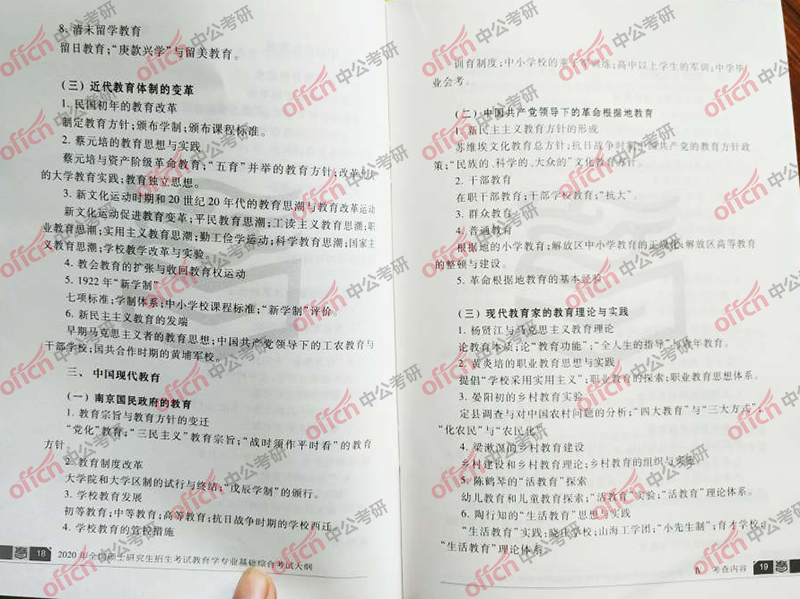 8. 清末留学教育
留日教育;“庚款兴学”与留美教育。
(三) 近代教育体制的变革
1. 民国初年的教育改革
制定教育方针;颁布学制;颁布课程标准。
2. 蔡元培的教育思想与实践
蔡元培与资产阶级革命教育;“五育”并举的教育方针;改革北京
的大学教育实践;教育独立思想。
3. 新文化运动时期和 20 世纪 20 年代的教育思潮与教育改革运动
新文化运动促进教育变革;平民教育思潮;工读主义教育思潮;职
业教育思潮;实用主义教育思潮;勤工俭学运动;科学教育思潮;国家主
义教育思潮;学校教学改革与实验。
4. 教会教育的扩张与收回教育权运动
5. 1922 年“新学制”
七项标准;学制体系;中小学校课程标准;“新学制”评价
6. 新民主主义教育的发端
早期马克思主义者的教育思想;中国共产党领导下的工农教育与
干部学校;国共合作时期的黄埔军校。
三、中国现代教育
(一) 南京国民政府的教育
1. 教育宗旨与教育方针的变迁
“党化”教育;“三民主义”教育宗旨;“战时须作平时看”的教育
方针。
2. 教育制度改革
大学院和大学区制的试行与终结;“戊辰学制”的颁行。
3. 学校教育发展
初等教育;中等教育;高等教育;抗日战争时期的学校西迁。
4. 学校教育的管控措施
18 2020 年全国硕士研究生招生考试教育学专业基础综合考试大纲
训育制度;中小学校的童子军训练;高中以上学生的军训;中学毕
业会考。
(二) 中国共产党领导下的革命根据地教育
1. 新民主主义教育方针的形成
苏维埃文化教育总方针;抗日战争时期中国共产党的教育方针政
策;“民族的、科学的、大众的”文化教育方针。
2. 干部教育
在职干部教育;干部学校教育;“抗大”。
3. 群众教育
4. 普通教育
根据地的小学教育;解放区中小学教育的正规化;解放区高等教育
的整顿与建设。
5. 革命根据地教育的基本经验
(三) 现代教育家的教育理论与实践
1. 杨贤江与马克思主义教育理论
论教育本质;论“教育功能”;“全人生的指导”与青年教育。
2. 黄炎培的职业教育思想与实践
提倡“学校采用实用主义”;职业教育的探索;职业教育思想体系。
3. 晏阳初的乡村教育实验
定县调查与对中国农村问题的分析;“四大教育”与“三大方式”;
“化农民”与“农民化”。
4. 梁漱溟的乡村教育建设
乡村建设和乡村教育理论;乡村教育的组织与实施
5. 陈鹤琴的“活教育”探索
幼儿教育和儿童教育探索;“活教育”实验;“活教育”理论体系。
6. 陶行知的“生活教育”思想与实践
“生活教育”实践;晓庄学校;山海工学团;“小先生制”;育才学校;
“生活教育”理论体系
Ⅳ 考查内容 19
offcn 中公考研